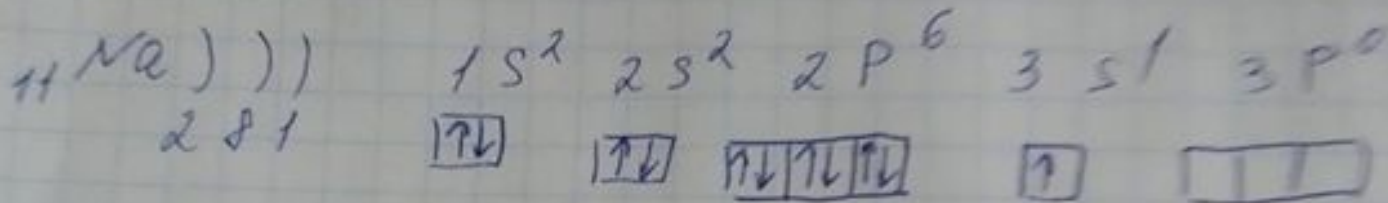 ₁₁Na ) ) ) 1s² 2s² 2p⁶ 3s¹ 3p⁰
2 8 1 ↑↓ ↑↓ ↑↓ ↑↓ ↑↓ ↑